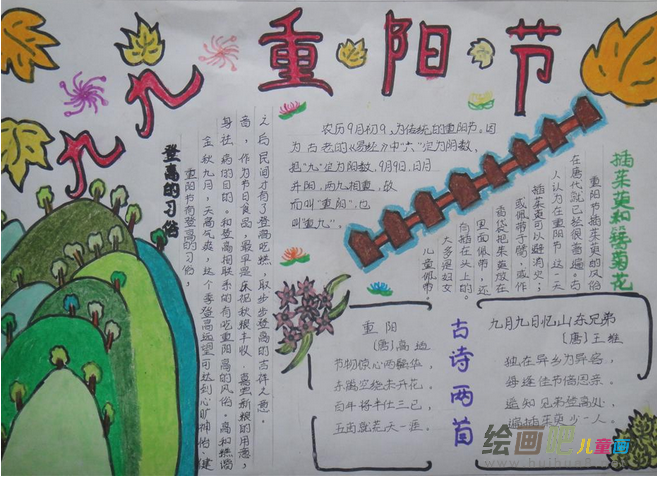 九九重阳节
农历9月初9,为传统的重阳节。因
为古老的《易经》中“六”定为阴数,
把“九”定为阳数,9月9日,日月
并阳,两九相重,故
而叫“重阳”,也
叫“重九”。
登高的习俗
重阳节有登高的习俗,
金秋九月,天高气爽,这个季登高远望可达到心旷神怡、健
身祛病的目的。和登高相联系的有吃重阳高的风俗。高和糕谐
音,作为节日食品,最早是庆祝秋粮丰收、喜尝新粮的用意,
之后民间才有了登高吃糕,取步步登高的吉祥之意。
插茱萸和簪菊花
重阳节插茱萸的风俗
在唐代就已经很普遍。古
人认为在重阳节这一天
插茱萸可以避难消灾;
或佩带于臂,或作
香袋把茱萸放在
里面佩带,还
有插在头上的。
大多是妇女
儿童佩带。
古诗两首
重阳
(唐)高适
节物惊心两鬓华,
东篱空绕未开花,
百年将半仕三已,
五亩就荒天一涯。
九月九日忆山东兄弟
(唐)王维
独在异乡为异客,
每逢佳节倍思亲。
遥知兄弟登高处,
遍插茱萸少一人。
绘画吧 儿童画